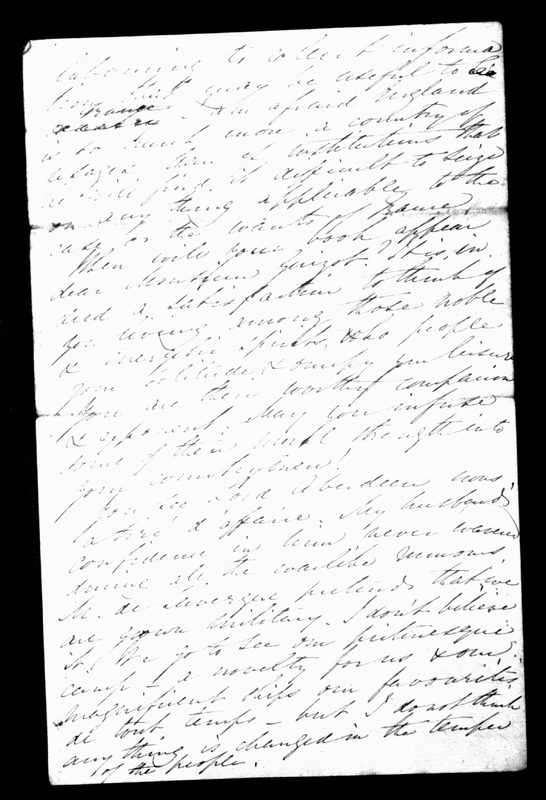 labouring to collect informa
tion that may be useful to
France. I am afraid England
is so much more a country of
usages, than of institutions that
he will find it difficult to seize
on any thing applicable to the
case or the wants of France.
When will your book appear
dear Monsieur Guizot. It is in
deed a satisfaction to think of
you living among those noble
& energetic spirits, who people
your solitude, & occupy your leisure
You are their worthy companion
& opponent. May you infuse
some of their moral strength into
your countrymen!
You see Lord Aberdeen nous
a tiré d'affaire. My husband's
confidence in him never wavered
during all the warlike rumours.
M. de Lavergne pretends that we
are grown military. I don't believe
it! We go to see our picturesque
camp - a novelty for us & our
magnificent ships our favourites
de tout temps - but I do not think
any thing is changed in the temper
of the people.